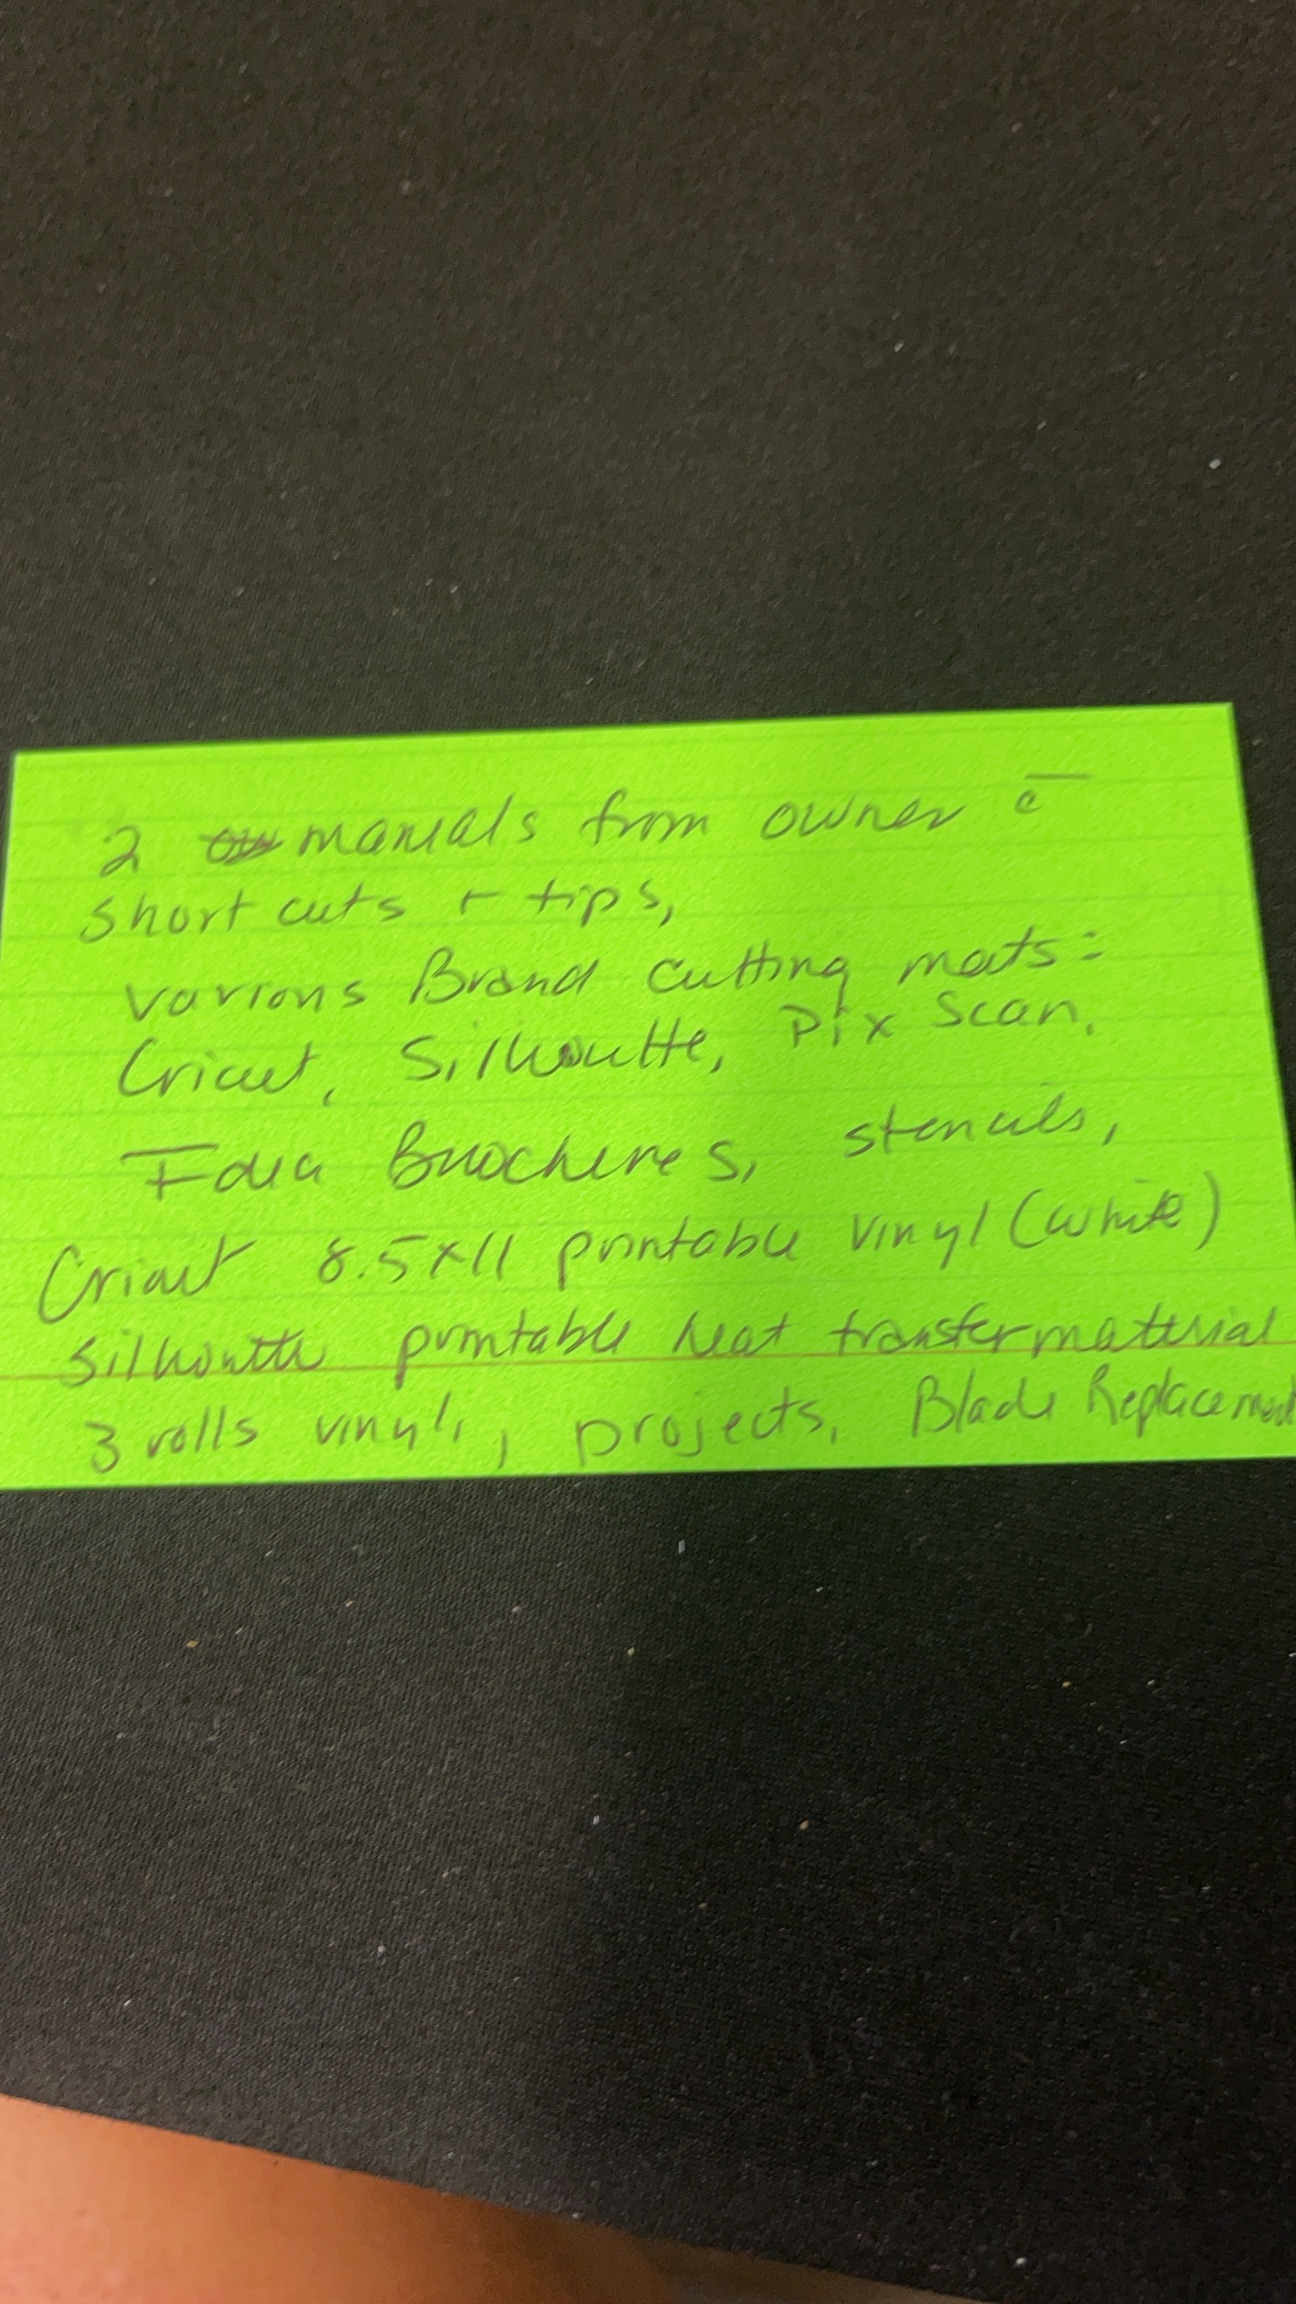 2 manuals from owner c̄
short cuts + tips,
various Brand cutting mats:
Cricut, Silhouette, Pix Scan,
Idea Brochures, stencils,
Cricut 8.5x11 printable vinyl (white)
Silhoutte printable heat transfer material
3 rolls vinyl, projects, Blade Replacement